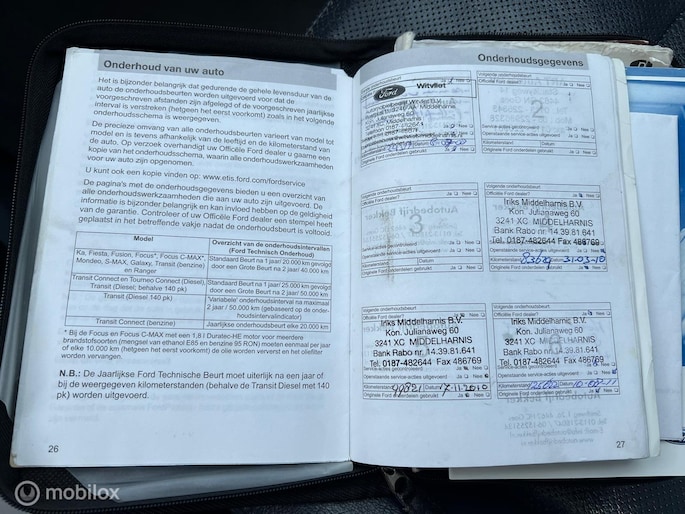 Onderhoud van uw auto
Het is bijzonder belangrijk dat gedurende de gehele levensduur van de
auto de onderhoudsbeurten worden uitgevoerd voor dat de
voorgeschreven afstanden zijn afgelegd of de voorgeschreven jaarlijkse
interval is verstreken (hetgeen het eerst voorkomt) zoals in het volgende
onderhoudsschema is weergegeven.
De precieze omvang van alle onderhoudsbeurten varieert van model tot
model en is tevens afhankelijk van de leeftijd en de kilometerstand van
de auto. Op verzoek overhandigt uw Officiële Ford dealer u gaarne een
kopie van het onderhoudsschema, waarin alle onderhoudswerkzaamheden
voor uw auto zijn opgenomen.
U kunt ook een kopie vinden op: www.etis.ford.com/fordservice
De pagina's met de onderhoudsgegevens bieden u een overzicht van
alle onderhoudswerkzaamheden die aan uw auto zijn uitgevoerd. De
informatie is bijzonder belangrijk en kan invloed hebben op de geldigheid
van de garantie. Controleer of uw Officiële Ford dealer een stempel heeft
geplaatst in het betreffende vakje nadat de onderhoudsbeurt is voltooid.
Model
Overzicht van de onderhoudsintervallen
(Ford Technisch Onderhoud)
Ka, Fiesta, Fusion, Focus*, Focus C-MAX*,
Mondeo, S-MAX, Galaxy, Transit (benzine)
en Ranger
Standaard Beurt na 1 jaar/ 20.000 km gevolgd
door een Grote Beurt na 2 jaar/ 40.000 km
Transit Connect en Tourneo Connect (Diesel),
Transit (Diesel; behalve 140 pk)
Standaard Beurt na 1 jaar/ 25.000 km gevolgd
door Grote Beurt na 2 jaar/ 50.000 km
Transit (Diesel 140 pk)
'Variabele' onderhoudsinterval na maximaal
2 jaar / 50.000 km (gebaseerd op de onder-
houdsintervalindicator)
Transit Connect (benzine)
Jaarlijkse onderhoudsbeurt elke 20.000 km
* Bij de Focus en Focus C-MAX met een 1,8 l Duratec-HE motor voor meerdere
brandstofsoorten (mengsel van ethanol E85 en benzine 95 RON) moeten eenmaal per jaar
of elke 10.000 km (hetgeen het eerst voorkomt) de olie worden ververst en het oliefilter
worden vervangen.
N.B.: De Jaarlijkse Ford Technische Beurt moet uiterlijk na een jaar of
bij de weergegeven kilometerstanden (behalve de Transit Diesel met 140
pk) worden uitgevoerd.
26
Onderhoudsgegevens
Ford
Witvliet
Automobielbedrijf Witvliet B.V.
Middelharnis
Volgende onderhoudsbeurt
Officiële Ford dealer? Ja Nee
2
Service-acties gecontroleerd Ja Nee
Openstaande service-acties uitgevoerd Ja Nee
Kilometerstand Datum
Originele Ford onderdelen gebruikt Ja Nee
Volgende onderhoudsbeurt
Officiële Ford dealer? Ja Nee
3
Service-acties gecontroleerd Ja Nee
Openstaande service-acties uitgevoerd Ja Nee
Kilometerstand Datum
Originele Ford onderdelen gebruikt Ja Nee
Volgende onderhoudsbeurt
Officiële Ford dealer? Ja Nee
Iriks Middelharnis B.V.
Kon. Julianaweg 60
3241 XC MIDDELHARNIS
Bank Rabo nr. 14.39.81.641
Tel. 0187-482644 Fax 486769
Openstaande service-acties uitgevoerd Ja Nee
Kilometerstand 31-03-10
Originele Ford onderdelen gebruikt Ja Nee
Volgende onderhoudsbeurt
Officiële Ford dealer? Ja Nee
Iriks Middelharnis B.V.
Kon. Julianaweg 60
3241 XC MIDDELHARNIS
Bank Rabo nr. 14.39.81.641
Tel. 0187-482644 Fax 486769
Service-acties gecontroleerd Ja Nee
Openstaande service-acties uitgevoerd Ja Nee
Kilometerstand 99821 Datum 17-11-2010
Originele Ford onderdelen gebruikt Ja Nee
Volgende onderhoudsbeurt
Officiële Ford dealer? Ja Nee
Iriks Middelharnis B.V.
Kon. Julianaweg 60
3241 XC MIDDELHARNIS
Bank Rabo nr. 14.39.81.641
Tel. 0187-482644 Fax 486769
Service-acties gecontroleerd
Openstaande service-acties uitgevoerd Ja Nee
Kilometerstand Datum
Originele Ford onderdelen gebruikt Ja Nee
27
mobilox